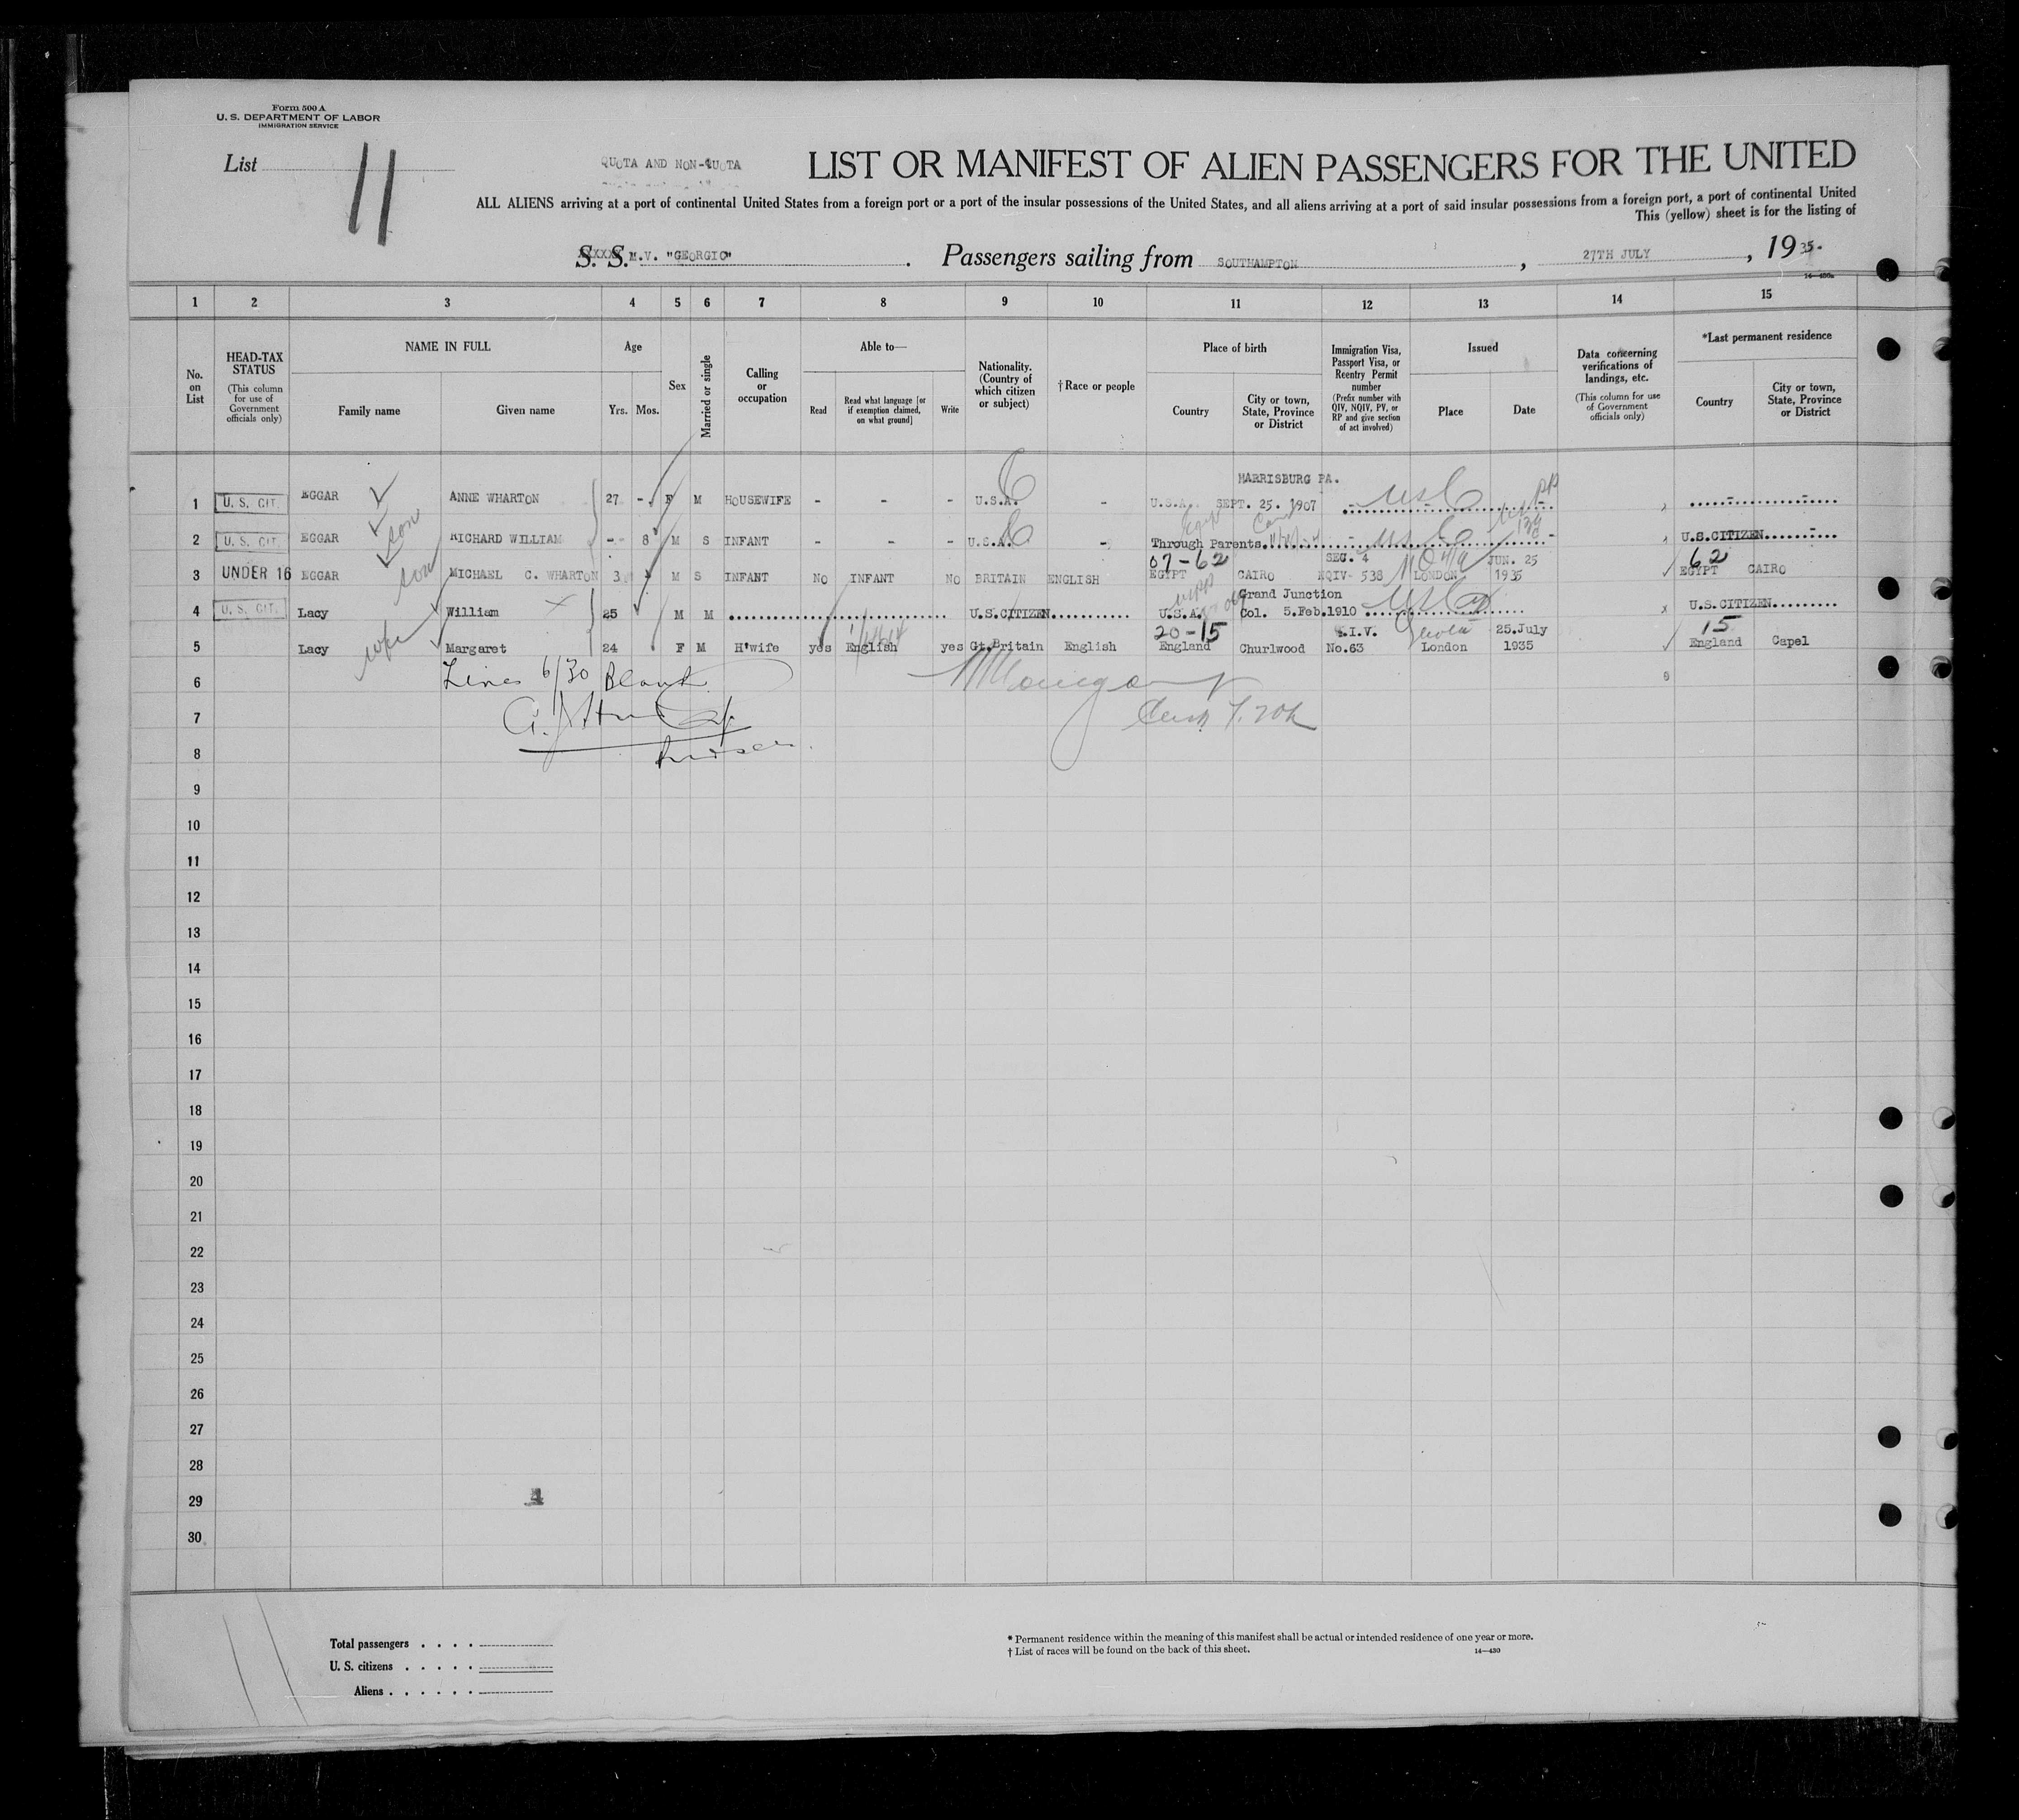 Form 500 A
U. S. DEPARTMENT OF LABOR
IMMIGRATION SERVICE
List 11
QUOTA AND NON-QUOTA
LIST OR MANIFEST OF ALIEN PASSENGERS FOR THE UNITED
ALL ALIENS arriving at a port of continental United States from a foreign port or a port of the insular possessions of the United States, and all aliens arriving at a port of said insular possessions from a foreign port, a port of continental United
This (yellow) sheet is for the listing of
S. S. M.V. "GEORGIC" . Passengers sailing from SOUTHAMPTON , 27TH JULY , 1935.
1 2 3 4 5 6 7 8 9 10 11 12 13 14 15
No. on List
HEAD-TAX STATUS (This column for use of Government officials only)
NAME IN FULL Family name Given name
Age Yrs. Mos.
Sex
Married or single
Calling or occupation
Able to— Read Read what language [or if exemption claimed, on what ground] Write
Nationality. (Country of which citizen or subject)
† Race or people
Place of birth Country City or town, State, Province or District
Immigration Visa, Passport Visa, or Reentry Permit number (Prefix number with QIV, NQIV, PV, or RP and give section of act involved)
Issued Place Date
Data concerning verifications of landings, etc. (This column for use of Government officials only)
*Last permanent residence Country City or town, State, Province or District
HARRISBURG PA.
1 U. S. CIT. EGGAR ANNE WHARTON 27 - F M HOUSEWIFE - - - U.S.A. - U.S.A. SEPT. 25. 1907 USC
2 U. S. CIT. EGGAR son RICHARD WILLIAM - 8 M S INFANT - - - U.S.A. - Through Parents USC U.S.CITIZEN
07-62 SEC. 4 JUN. 25 62
3 UNDER 16 EGGAR son MICHAEL C. WHARTON 3 M S INFANT NO INFANT NO BRITAIN ENGLISH EGYPT CAIRO NQIV- 538 LONDON 1935 EGYPT CAIRO
Grand Junction
4 U. S. CIT. Lacy William 25 M M U.S.CITIZEN U.S.A. Col. 5.Feb.1910 USC U.S.CITIZEN
20-15 25.July 15
5 Lacy wife Margaret 24 F M H'wife yes English yes Gt.Britain English England Churlwood No.63 London 1935 England Capel
6 Lines 6/30 Blank
7
8
9
10
11
12
13
14
15
16
17
18
19
20
21
22
23
24
25
26
27
28
29
30
Total passengers
U. S. citizens
Aliens
* Permanent residence within the meaning of this manifest shall be actual or intended residence of one year or more.
† List of races will be found on the back of this sheet.
14—430